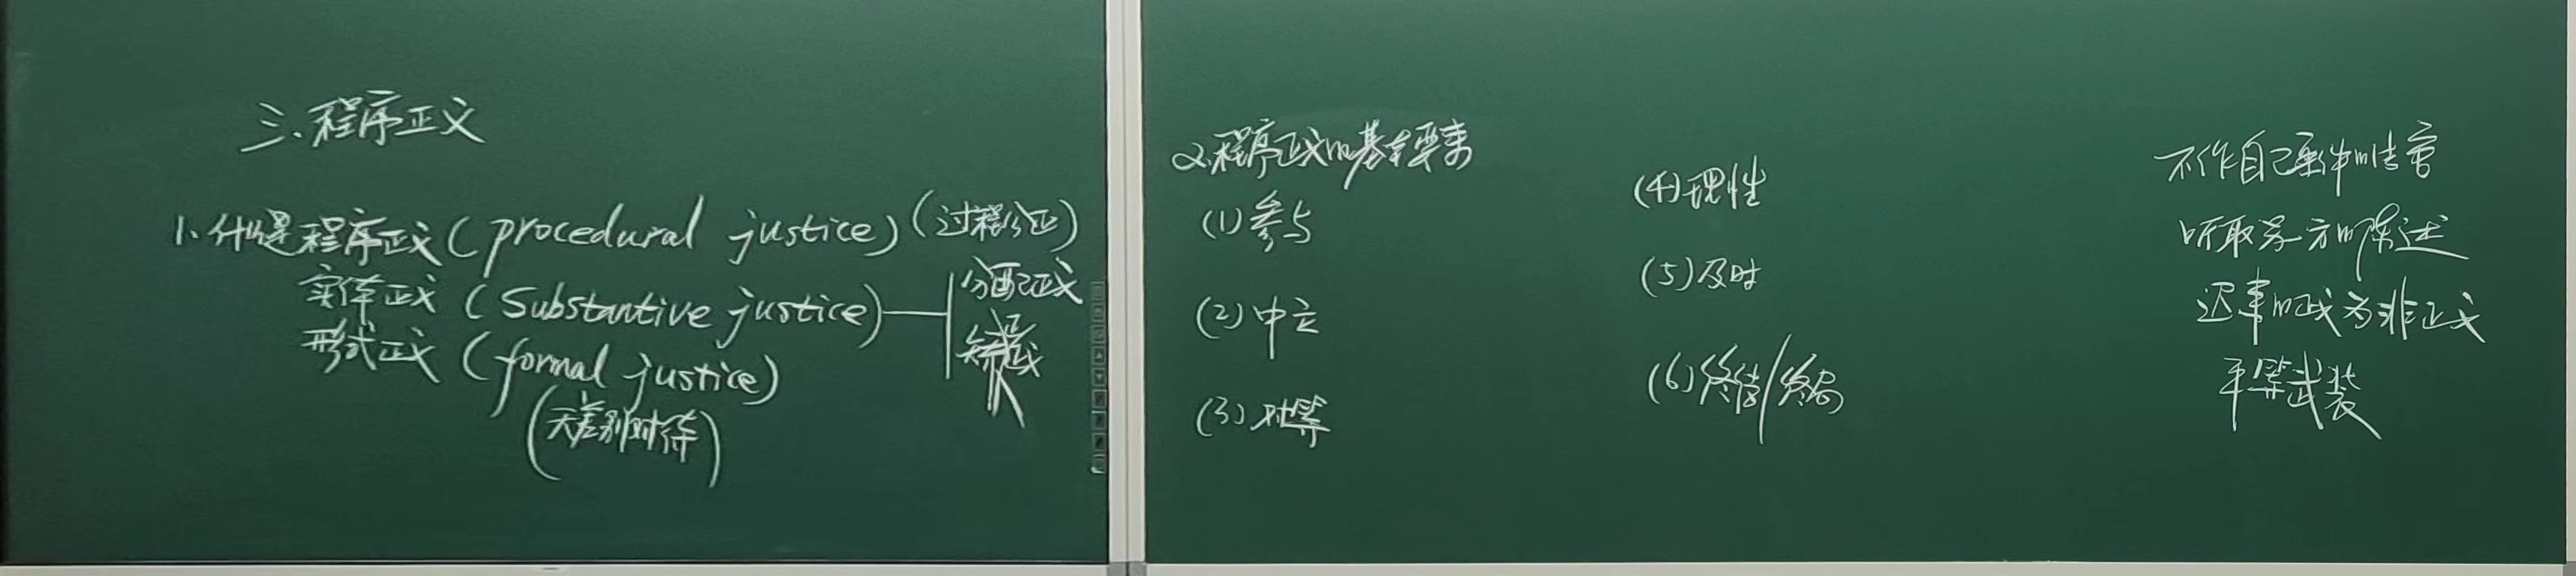 三、程序正义
1、什么是程序正义(procedural justice)(过程公正)
实体正义(Substantive justice)
分配正义
矫正正义
形式正义(formal justice)
(无差别对待)
2.程序正义的基本要素
(1)参与
(2)中立
(3)对等
(4)理性
(5)及时
(6)终结/终局
不作自己案件的法官
听取多方的陈述
迟来的正义为非正义
平等武装